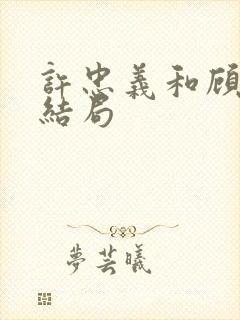 許忠義和顧
結局
夢芸曦